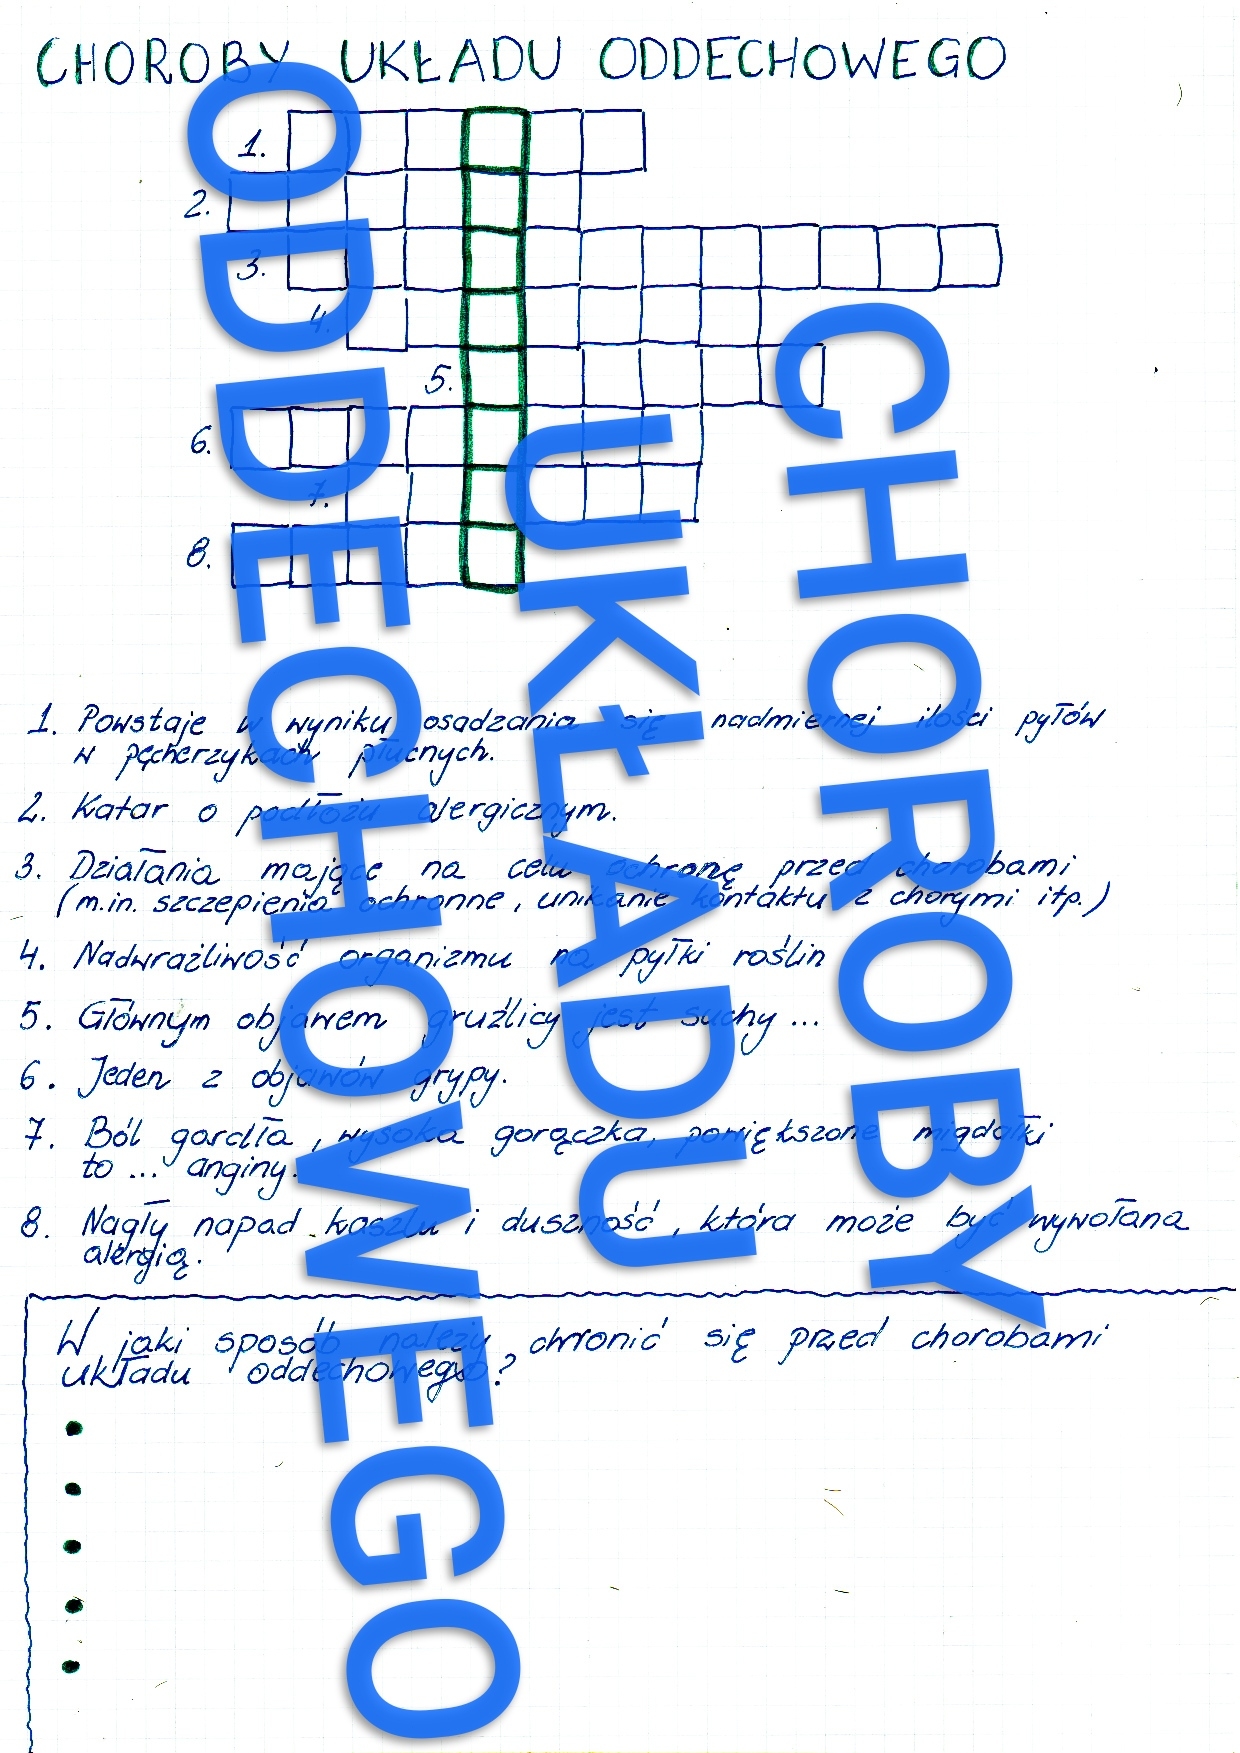 CHOROBY UKŁADU ODDECHOWEGO
1.
2.
3.
4.
5.
6.
7.
8.
1. Powstaje w wyniku osadzania się nadmiernej ilości pyłów
w pęcherzykach płucnych.
2. Katar o podłożu alergicznym.
3. Działania mające na celu ochronę przed chorobami
(m.in. szczepienia ochronne, unikanie kontaktu z chorymi itp.)
4. Nadwrażliwość organizmu na pyłki roślin
5. Głównym objawem gruźlicy jest suchy ...
6. Jeden z objawów grypy.
7. Ból gardła, wysoka gorączka, powiększone migdałki
to ... anginy.
8. Nagły napad kaszlu i duszność, która może być wywołana
alergią.
W jaki sposób należy chronić się przed chorobami
układu oddechowego?
CHOROBY
UKŁADU
ODDECHOWEGO